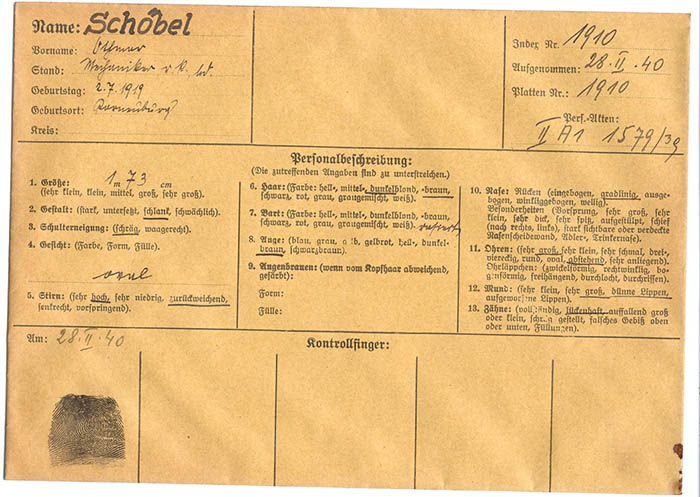 Name: Schöbel
Vorname: Othmar
Stand: Mechaniker r. k. ld.
Geburtstag: 2.7.1919
Geburtsort: Korneuburg
Kreis:
Index Nr. 1910
Aufgenommen: 28.II.40
Platten Nr.: 1910
Pers.-Akten:
II A1 1579/39
Personalbeschreibung:
(Die zutreffenden Angaben sind zu unterstreichen.)
1. Größe: 1 m 73 cm
(sehr klein, klein, mittel, groß, sehr groß).
2. Gestalt: (stark, untersetzt, schlank, schwächlich).
3. Schulterneigung: (schräg, waagerecht).
4. Gesicht: (Farbe, Form, Fülle).
oval
5. Stirn: (sehr hoch, sehr niedrig, zurückweichend,
senkrecht, vorspringend).
6. Haar: (Farbe: hell-, mittel-, dunkelblond, -braun,
schwarz, rot, grau, graugemischt, weiß).
7. Bart: (Farbe: hell-, mittel-, dunkelblond, -braun,
schwarz, rot, grau, graugemischt, weiß). rasiert
8. Auge: (blau, grau, gelb, gelbrot, hell-, dunkel-
braun, schwarzbraun).
9. Augenbrauen: (wenn vom Kopfhaar abweichend,
gefärbt):
Form:
Fülle:
10. Nase: Rücken (eingebogen, gradlinig, ausge-
bogen, winkliggebogen, wellig).
Besonderheiten (Vorsprung, sehr groß, sehr
klein, sehr dick, sehr spitz, aufgestülpt, schief
(nach rechts, links), stark sichtbare oder verdeckte
Nasenscheidewand, Adler-, Trinkernase).
11. Ohren: (sehr groß, sehr klein, sehr schmal, drei-,
viereckig, rund, oval, abstehend, sehr anliegend).
Ohrläppchen: (zwickelförmig, rechtwinklig, bo-
genförmig, freihängend, durchlocht, durchriffen).
12. Mund: (sehr klein, sehr groß, dünne Lippen,
aufgeworfene Lippen).
13. Zähne: (vollständig, lückenhaft, auffallend groß
oder klein, schräg gestellt, falsches Gebiß oben
oder unten, Füllungen).
Am: 28.II.40
Kontrollfinger: